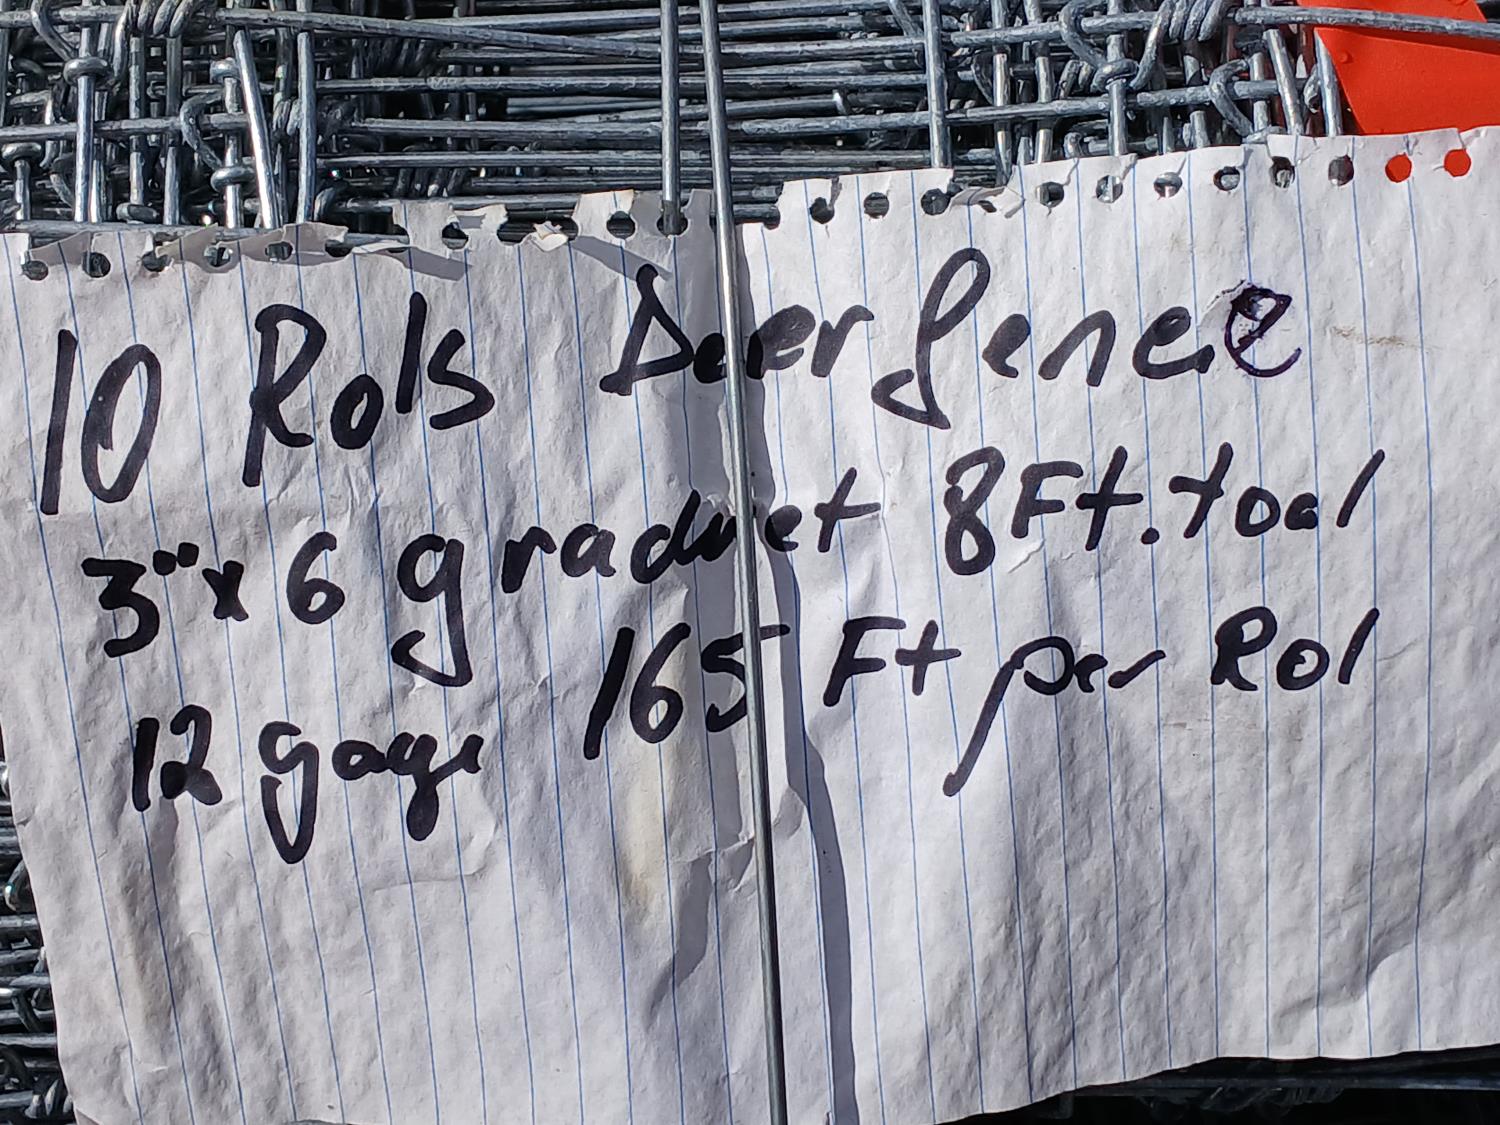 10 Rols Deer fence
3"x 6 graduet 8Ft. toal
12 gage 165 Ft per Rol